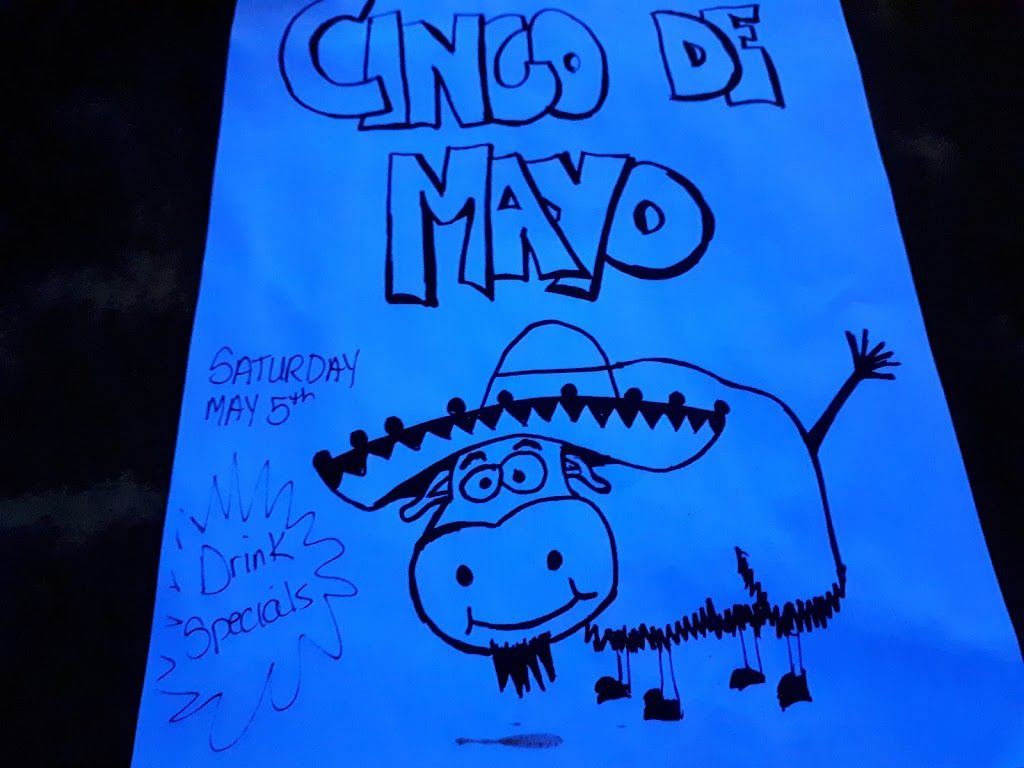 CINCO DE
MAYO
SATURDAY
MAY 5th
Drink
Specials